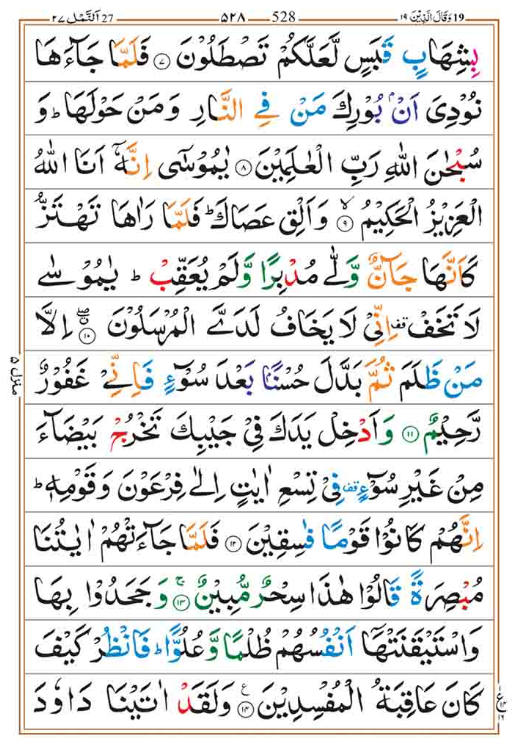 ١٩ وَقَالَ الَّذِيْنَ 19 528 ٥٢٨ 27 اَلنَّمْل ٢٧
بِشِهَابٍ قَبَسٍ لَّعَلَّكُمْ تَصْطَلُوْنَ ۝٧ فَلَمَّا جَآءَهَا
نُوْدِىَ اَنْۢ بُوْرِكَ مَنْ فِى النَّارِ وَمَنْ حَوْلَهَا ؕ وَ
سُبْحٰنَ اللّٰهِ رَبِّ الْعٰلَمِيْنَ ۝٨ يٰمُوْسٰۤى اِنَّهٗۤ اَنَا اللّٰهُ
الْعَزِيْزُ الْحَكِيْمُ ۙ‏ ۝٩ وَاَلْقِ عَصَاكَ ؕ فَلَمَّا رَاٰهَا تَهْتَزُّ
كَاَنَّهَا جَآنٌّ وَّلّٰى مُدْبِرًا وَّلَمْ يُعَقِّبْ ؕ يٰمُوْسٰى
لَا تَخَفْ قف اِنِّىْ لَا يَخَافُ لَدَىَّ الْمُرْسَلُوْنَ ۖ ۝١٠ اِلَّا
مَنْ ظَلَمَ ثُمَّ بَدَّلَ حُسْنًۢا بَعْدَ سُوْٓءٍ فَاِنِّىْ غَفُوْرٌ
رَّحِيْمٌ ۝١١ وَاَدْخِلْ يَدَكَ فِىْ جَيْبِكَ تَخْرُجْ بَيْضَآءَ
مِنْ غَيْرِ سُوْٓءٍ قف فِىْ تِسْعِ اٰيٰتٍ اِلٰى فِرْعَوْنَ وَقَوْمِهٖ ؕ
اِنَّهُمْ كَانُوْا قَوْمًا فٰسِقِيْنَ ۝١٢ فَلَمَّا جَآءَتْهُمْ اٰيٰتُنَا
مُبْصِرَةً قَالُوْا هٰذَا سِحْرٌ مُّبِيْنٌ ۚ ۝١٣ وَجَحَدُوْا بِهَا
وَاسْتَيْقَنَتْهَاۤ اَنْفُسُهُمْ ظُلْمًا وَّعُلُوًّا ؕ فَانْظُرْ كَيْفَ
كَانَ عَاقِبَةُ الْمُفْسِدِيْنَ ۝١٤ ع وَلَقَدْ اٰتَيْنَا دَاوٗدَ
منزل ٥